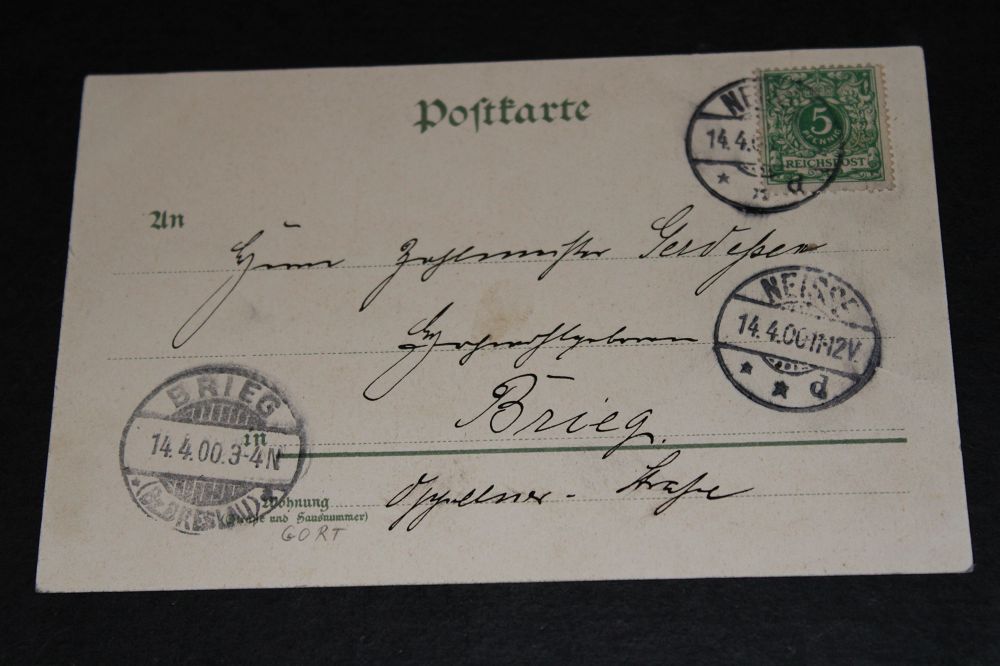 Postkarte
NEI
14.4.0
d
5
PFENNIG
REICHSPOST
An
Herrn Zahlmeister Gerdessen
Hochwohlgeboren
NEISSE
14.4.00 11-12V.
d
in Brieg.
BRIEG
14.4.00.3-4N
(Bz. BRESLAU)
Wohnung
(Straße und Hausnummer)
Oppelner-Straße
GORT